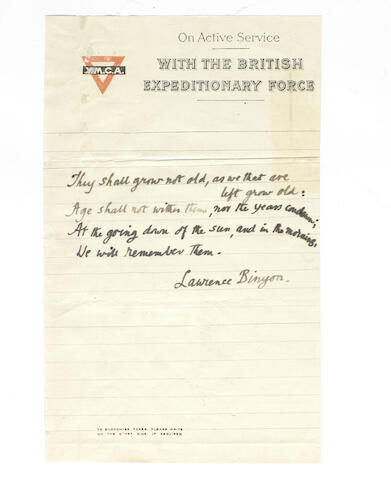 On Active Service
WITH THE BRITISH
EXPEDITIONARY FORCE
Y.M.C.A.
They shall grow not old, as we that are
left grow old:
Age shall not wither them, nor the years condemn;
At the going down of the sun, and in the morning,
We will remember them.
Lawrence Binyon.
TO ECONOMISE PAPER, PLEASE WRITE
ON THE OTHER SIDE, IF REQUIRED.